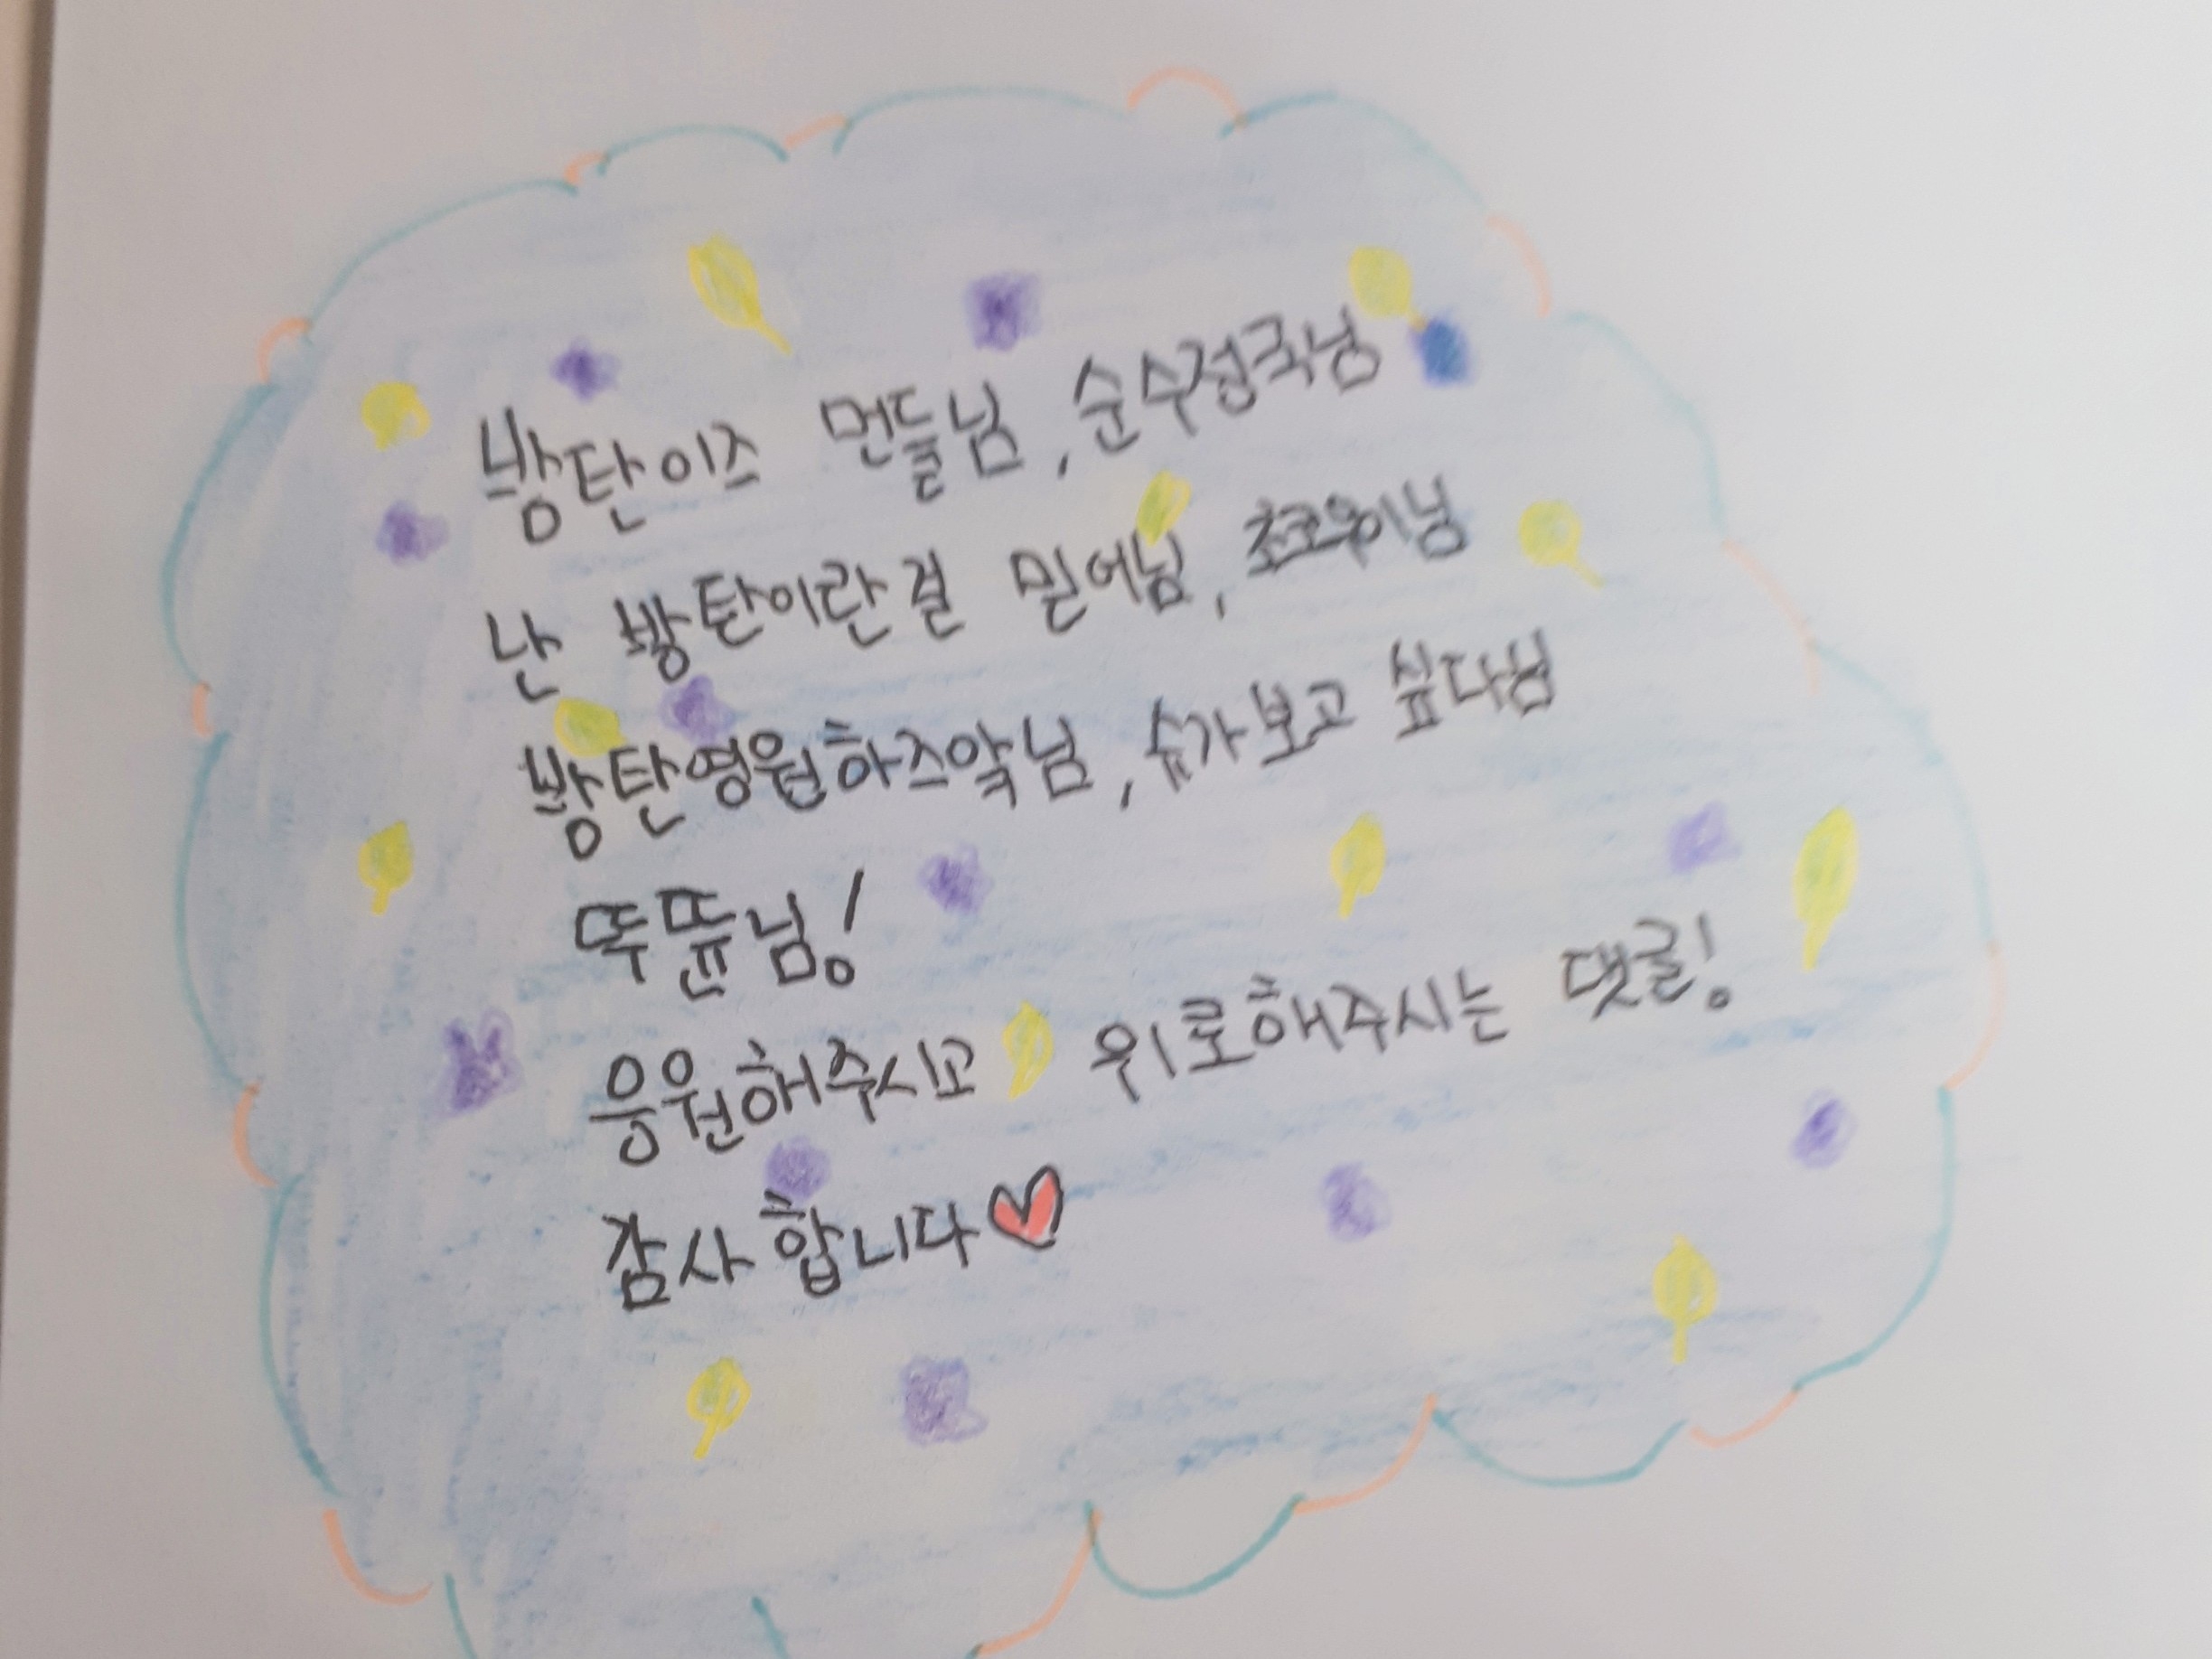 방탄이즈 먼들님, 순수정국님
난 방탄이란걸 믿어님, 초코우이님
방탄영원하즈악님, 슈가보고 싶다님
뚝뜐님!
응원해주시고 위로해주시는 댓글!
감사합니다